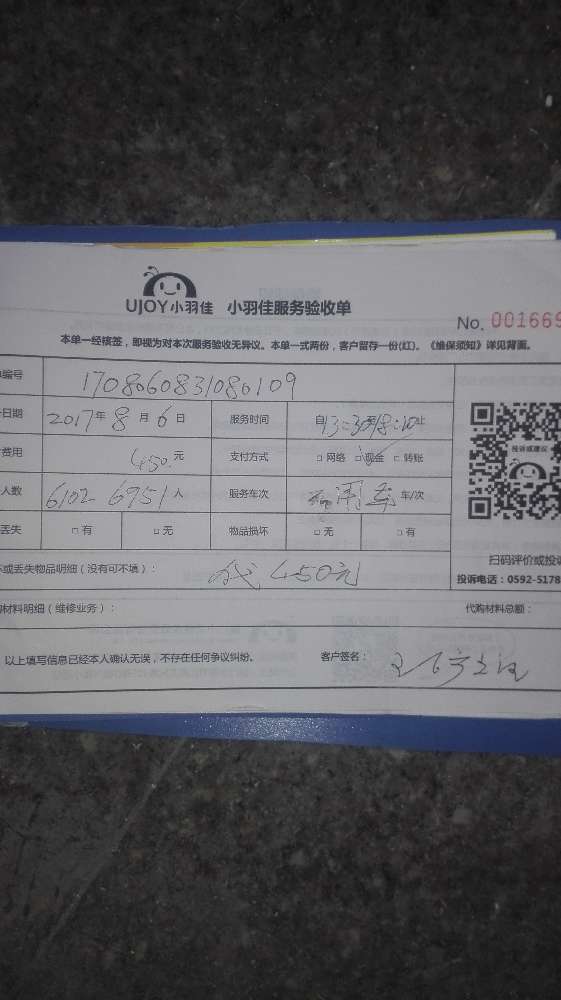 UJOY小羽佳 小羽佳服务验收单
No. 001669
本单一经核签，即视为对本次服务验收无异议。本单一式两份，客户留存一份(红)。《维保须知》详见背面。
编号 1708060831080109
日期 2017年8月6日 服务时间 自13:30至18:10止
费用 450.元 支付方式 □网络 □现金 □转账
人数 6102 6951人 服务车次 用车 车/次
投诉或建议
丢失 □有 □无 物品损坏 □无 □有
扫码评价或投诉
或丢失物品明细（没有可不填）： 450元
投诉电话：0592-5178
材料明细（维修业务）： 代购材料总额：
以上填写信息已经本人确认无误，不存在任何争议纠纷。 客户签名：